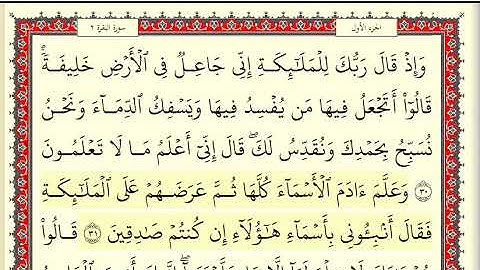 الجزء الأول
سورة البقرة ٢
وَإِذْ قَالَ رَبُّكَ لِلْمَلَٰٓئِكَةِ إِنِّى جَاعِلٌ فِى ٱلْأَرْضِ خَلِيفَةًۖ
قَالُوٓا۟ أَتَجْعَلُ فِيهَا مَن يُفْسِدُ فِيهَا وَيَسْفِكُ ٱلدِّمَآءَ وَنَحْنُ
نُسَبِّحُ بِحَمْدِكَ وَنُقَدِّسُ لَكَۖ قَالَ إِنِّىٓ أَعْلَمُ مَا لَا تَعْلَمُونَ
٣٠ وَعَلَّمَ ءَادَمَ ٱلْأَسْمَآءَ كُلَّهَا ثُمَّ عَرَضَهُمْ عَلَى ٱلْمَلَٰٓئِكَةِ
فَقَالَ أَنۢبِـُٔونِى بِأَسْمَآءِ هَٰٓؤُلَآءِ إِن كُنتُمْ صَٰدِقِينَ ٣١ قَالُوا۟